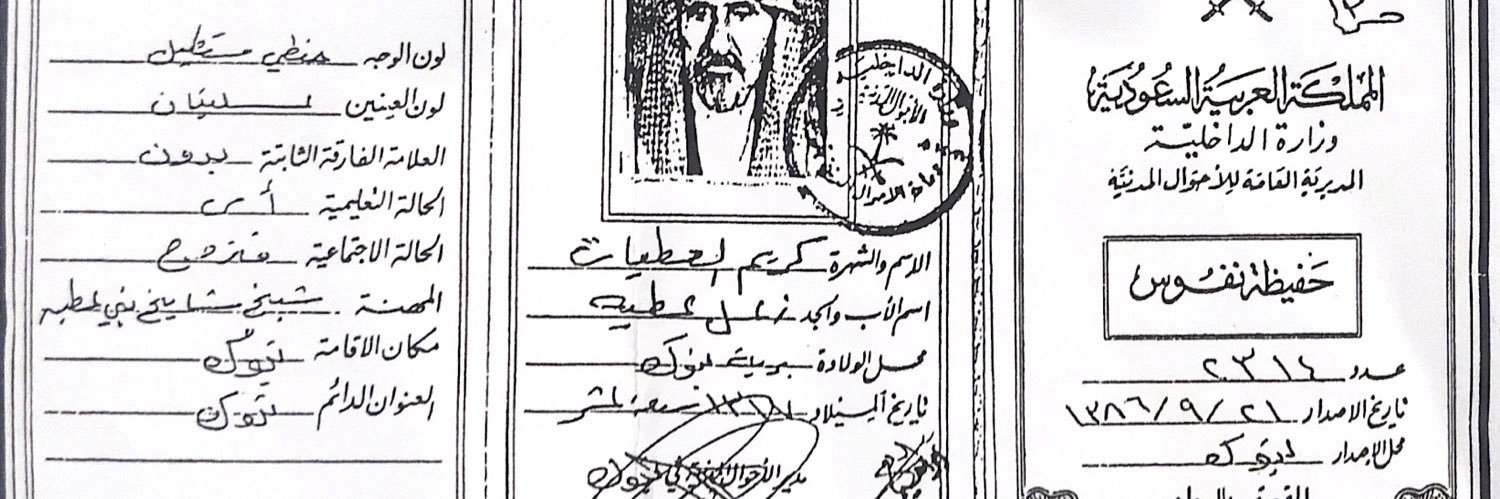 المملكة العربية السعودية
وزارة الداخلية
المديرية العامة للأحوال المدنية
حفيظة نفوس
عدد ٢٣١٤
تاريخ الاصدار ١٣٨٦/٩/٢١
محل الإصدار تبوك
وزارة الداخلية
الاسم والشهرة كريم العطيات
اسم الأب والجد عطيه
محل الولادة تبوك
تاريخ الميلاد
مدير الأحوال المدنية في تبوك
لون الوجه حنطي مستطيل
لون العينين عسليتان
العلامة الفارقة الثابتة بدون
الحالة التعليمية أمي
الحالة الاجتماعية متزوج
المهنة شيخ مشايخ بني عطيه
مكان الاقامة تبوك
العنوان الدائم تبوك